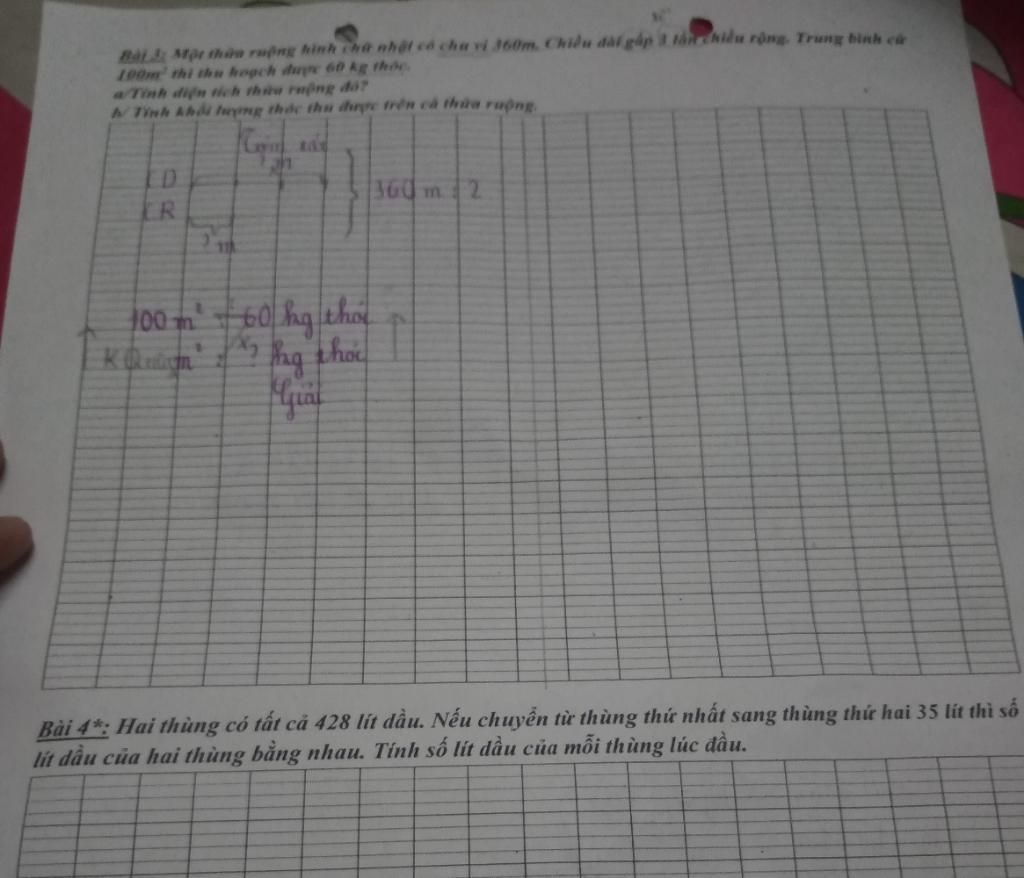 Bài 3: Một thửa ruộng hình chữ nhật có chu vi 360m. Chiều dài gấp 3 lần chiều rộng. Trung bình cứ
100m² thì thu hoạch được 60 kg thóc.
a/Tính diện tích thửa ruộng đó?
b/ Tính khối lượng thóc thu được trên cả thửa ruộng.
? m
CD
360 m : 2
CR
? m
100 m² : 60 kg thóc
m² : ? kg thóc
Giải
Bài 4*: Hai thùng có tất cả 428 lít dầu. Nếu chuyển từ thùng thứ nhất sang thùng thứ hai 35 lít thì số
lít dầu của hai thùng bằng nhau. Tính số lít dầu của mỗi thùng lúc đầu.